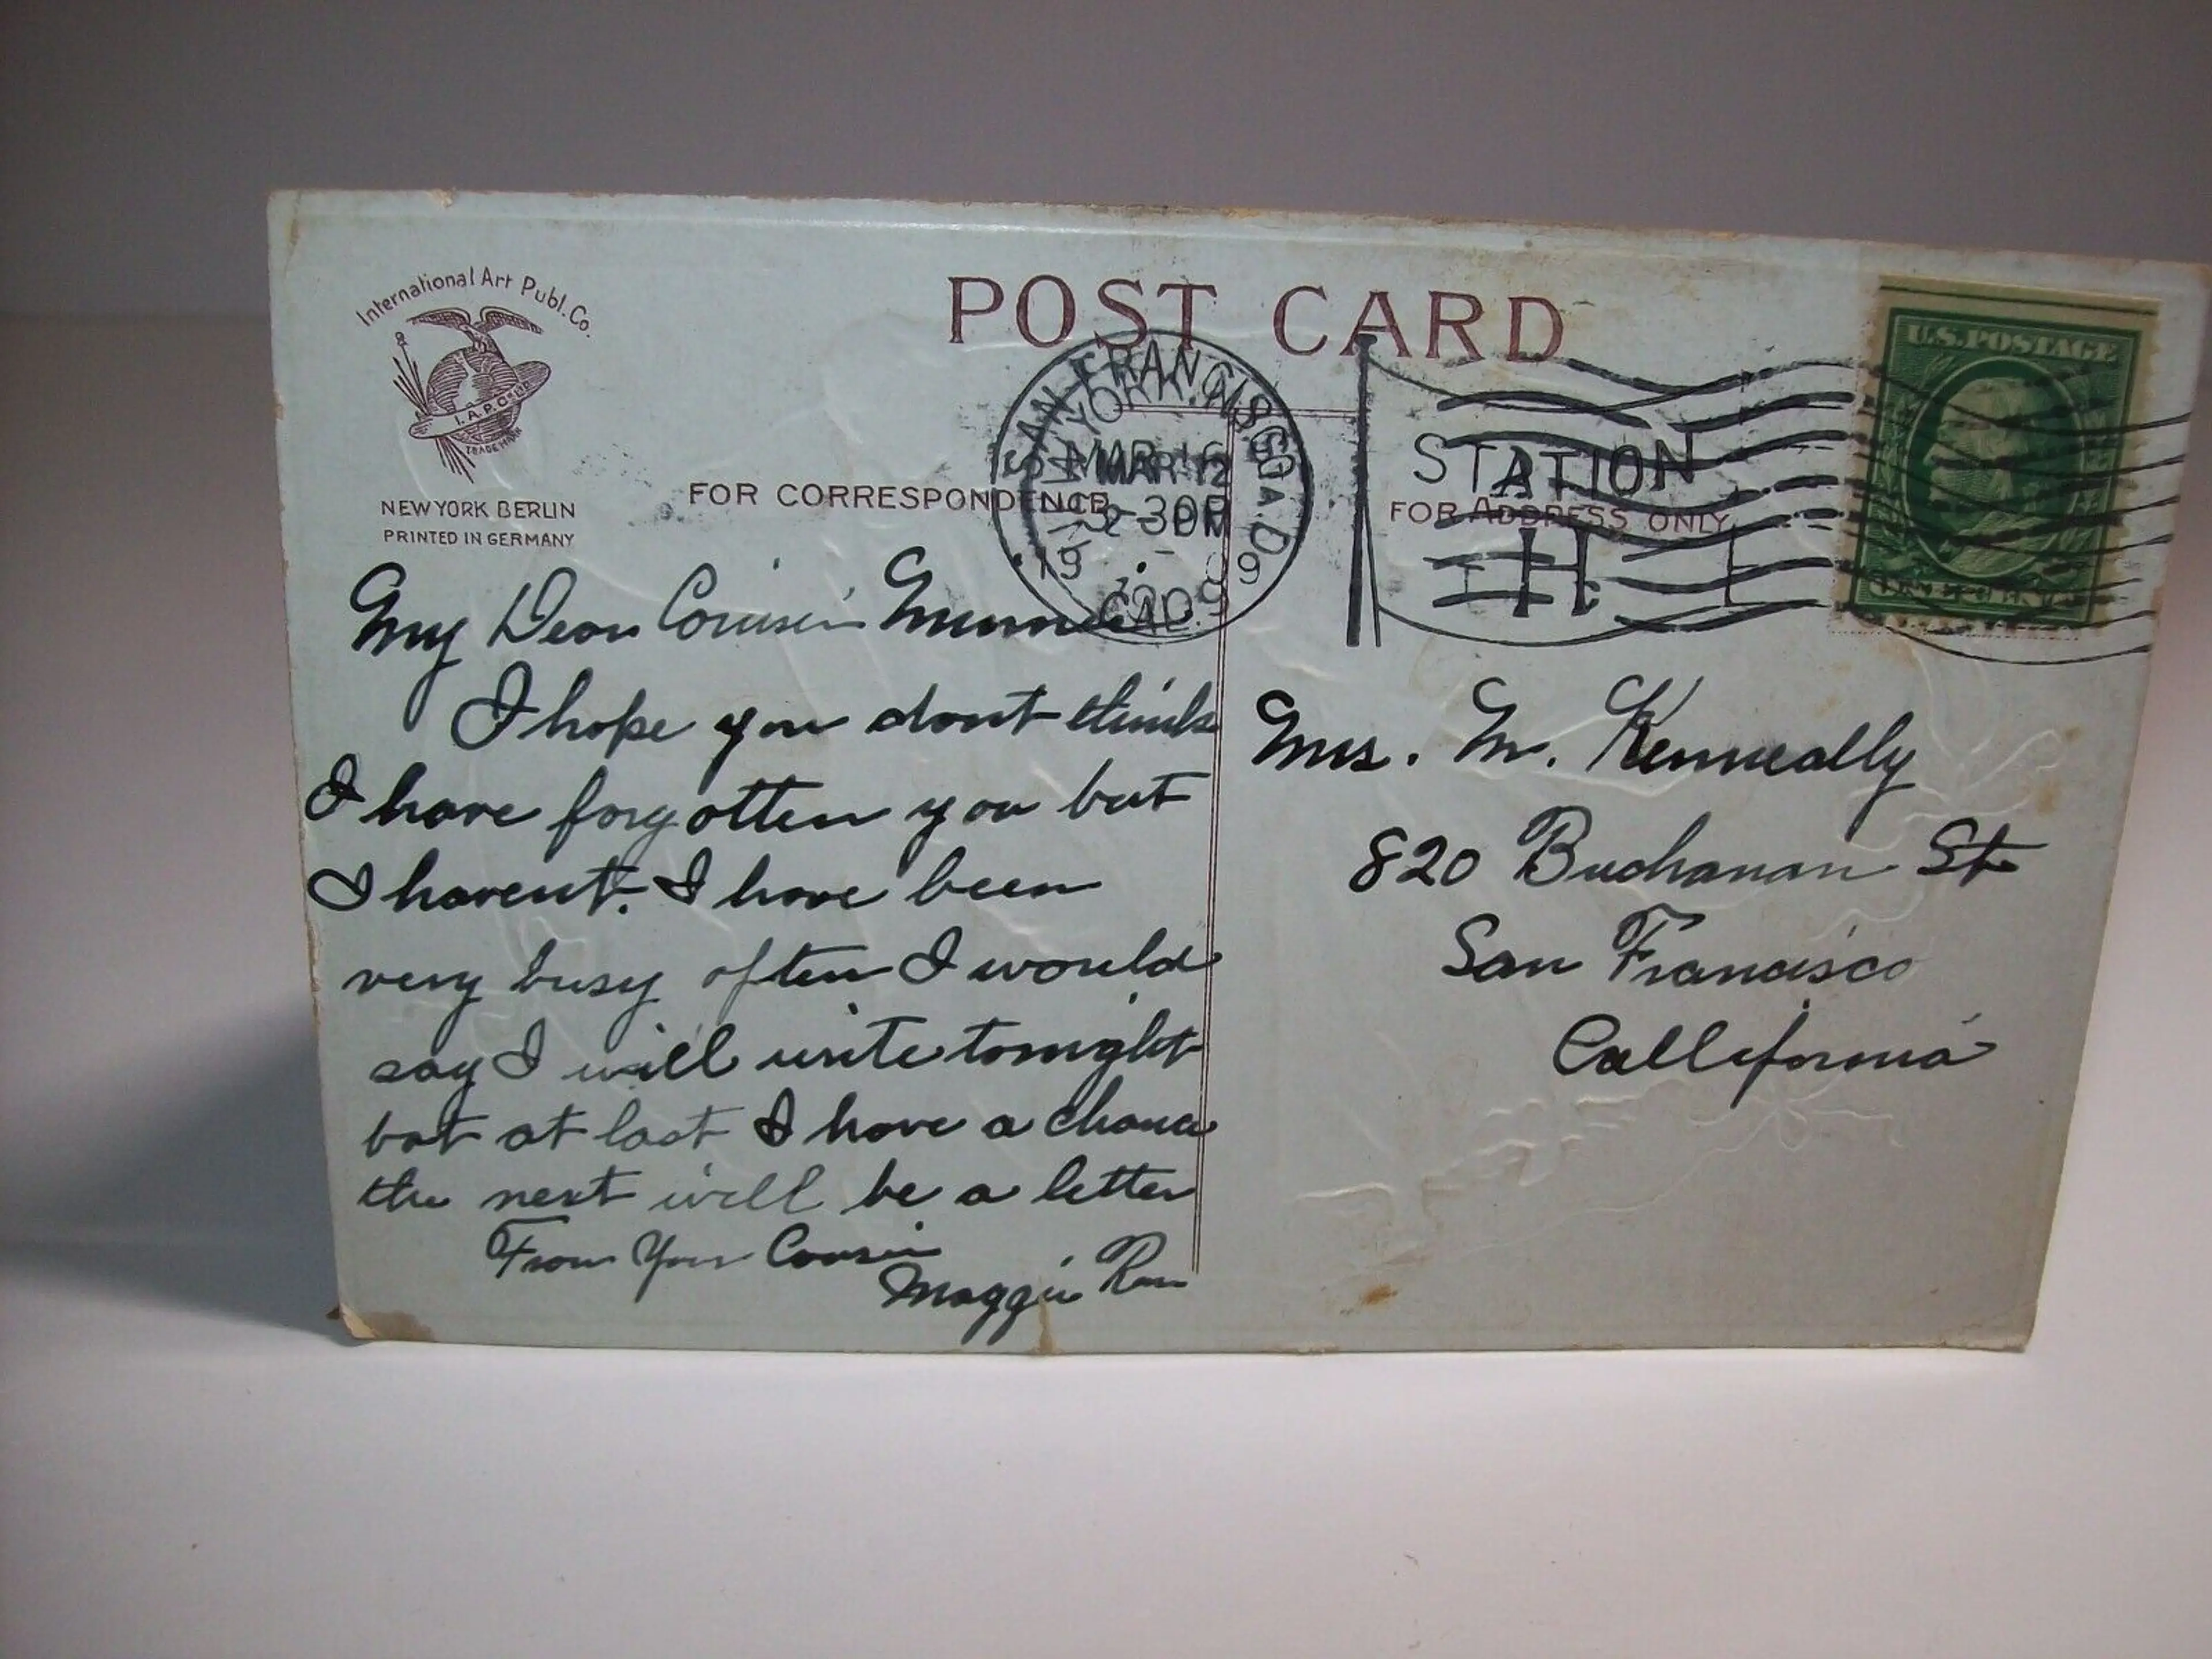 International Art Publ. Co.
I. A. P. Co. LTD
TRADE MARK
NEW YORK BERLIN
PRINTED IN GERMANY
POST CARD
FOR CORRESPONDENCE
FOR ADDRESS ONLY
SAN FRANCISCO
YORK, N.
MAR 12
3-30P
1909
CAL.
STATION
H
U.S. POSTAGE
My Dear Cousin Minnie
I hope you dont think
I have forgotten you but
I havent. I have been
very busy often I would
say I will write tonight
but at last I have a chance
the next will be a letter
From Your Cousin
Maggie
Mrs. M. Kenneally
820 Buchanan St
San Francisco
California